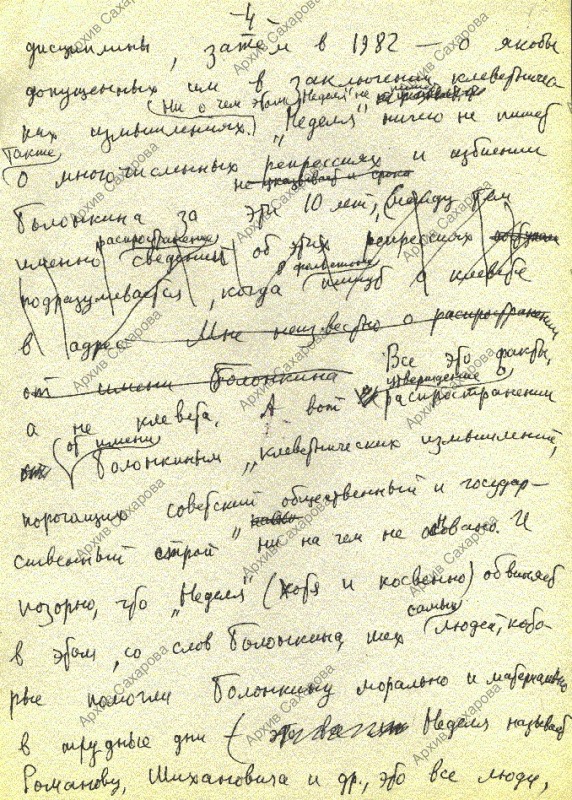 - 4 -
дисциплины, затем в 1982 — о якобы
допущенных им в заключении клеветничес
ких измышлениях. (Ни о чем этом „Неделя" не пишет) „Неделя" ничего не пишет
также
о многочисленных репрессиях и избиении
не указывает и срока
Болонкина за эти 10 лет, (между тем
именно распространение сведений об этих репрессиях
подразумевается, когда в фельетоне пишут о клевете
в адрес Мне неизвестно о распространении
от имени Болонкина Все это факты,
а не клевета. А вот утверждение распространении
от имени
Болонкиным „клеветнических измышлений,
порочащих советский общественный и государ-
ственный строй" ни на чем не основано. И
позорно, что „Неделя" (хотя и косвенно) обвиняет
в этом, со слов Болонкина, тех самых людей, кото-
рые помогли Болонкину морально и материально
в трудные дни — Неделя называет
Романову, Шихановича и др., это все люди,
Архив Сахарова